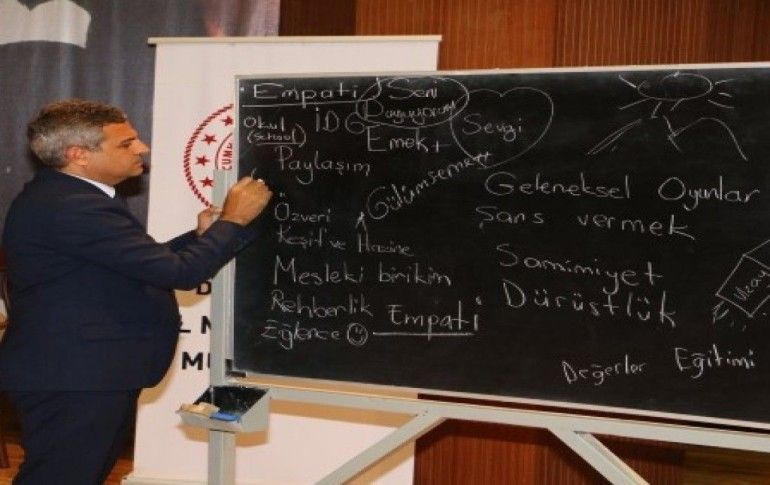 Empati
Seni
Duyuyorum
Okul
(School)
İDG
Emek +
Sevgi
Paylaşım
Gülümsemek
Geleneksel Oyunlar
Özveri
Şans vermek
Keşif ve Hazine
Samimiyet
Mesleki birikim
Dürüstlük
Uzay
Rehberlik
Empati
Eğlence
Değerler Eğitimi